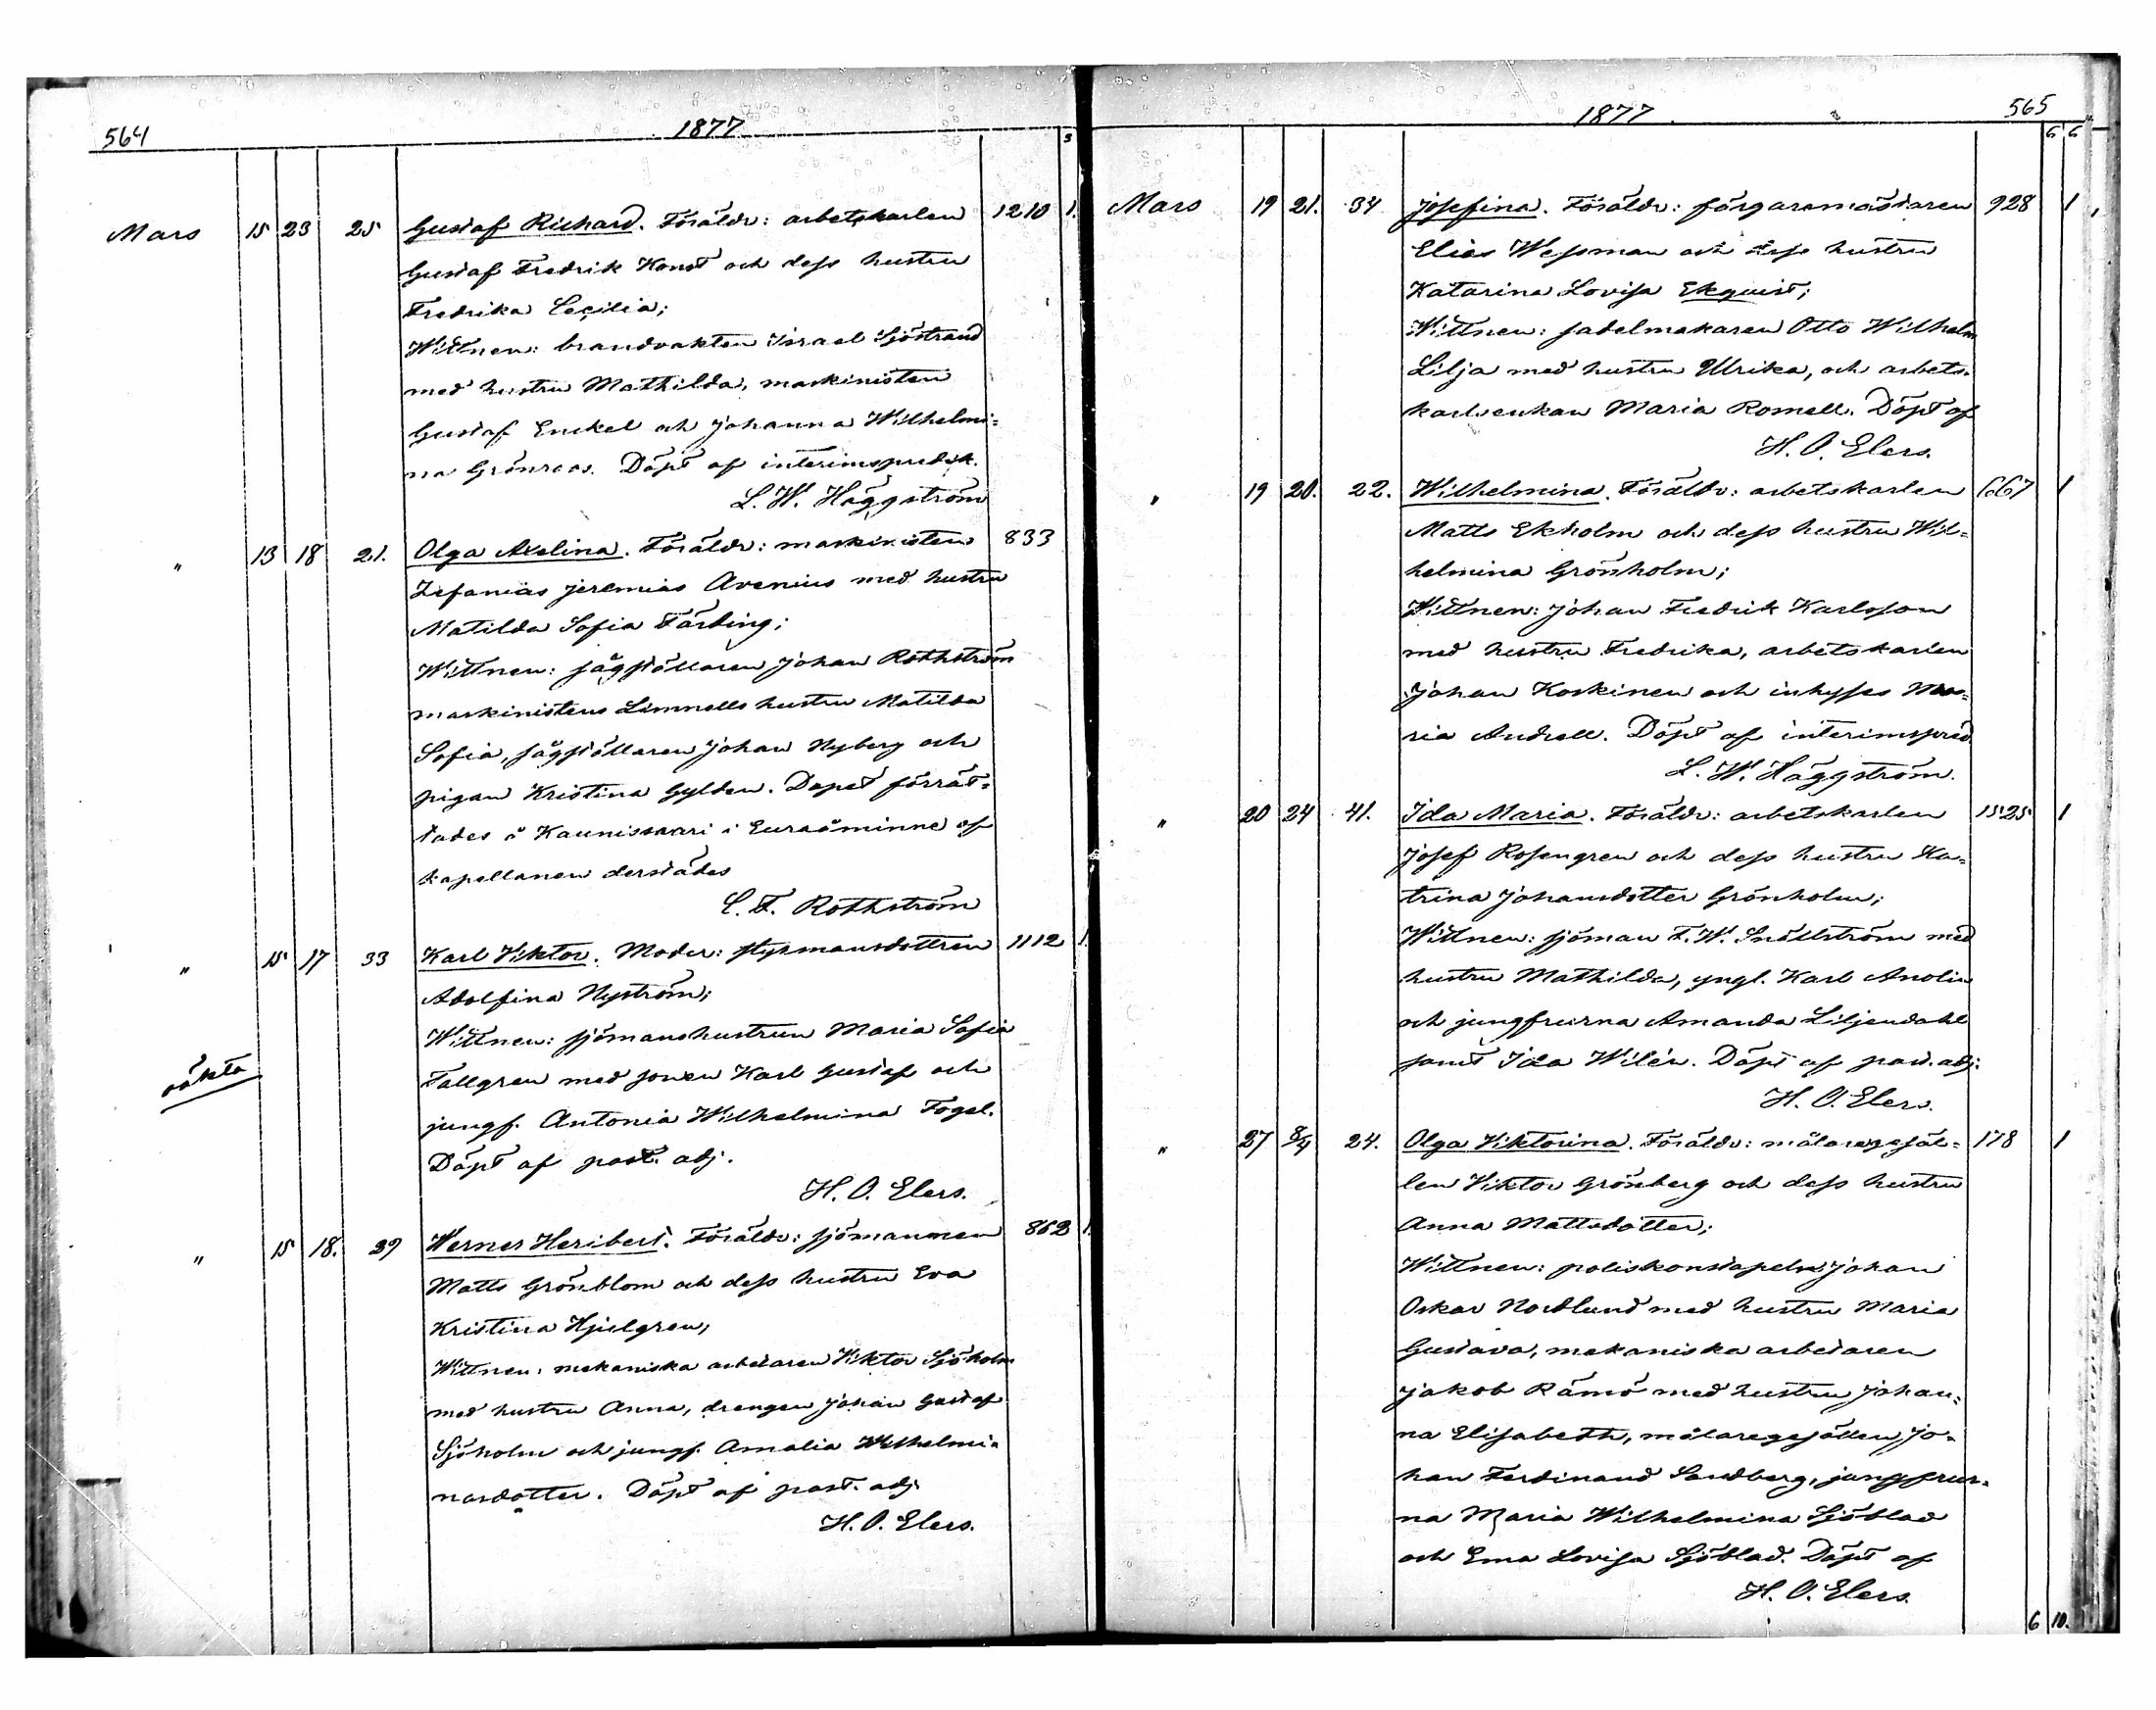 564
1877
3
Mars 15 23 25 Gustaf Richard. Föräldr: arbetskarlen 1210 1.
Gustaf Fredrik Konst och dess hustru
Fredrika Cecilia;
Wittnen: brandvakten Israel Sjöstrand
med hustru Mathilda, maskinisten
Gustaf Enckel och Johanna Wilhelmi=
na Grönroos. Döpt af interimspredik.
L. W. Häggström
" 13 18 21. Olga Axelina. Föräldr: maskinisten 833
Zefanias Jeremias Avenius med hustru
Matilda Sofia Färling;
Wittnen: sågställaren Johan Rothström
maskinistens Limnells hustru Matilda
Sofia, sågställaren Johan Nyberg och
pigan Kristina Gylden. Dopet förrät=
tades å Kaunissaari i Euraåminne af
kapellanen derstädes
C. F. Rothström
" 15 17 33 Karl Viktor. Moder: styrmansdottren 1112 1.
Adolfina Nyström;
Wittnen: sjömanshustrun Maria Sofia
oäkta
Tallgren med sonen Karl Gustaf och
jungf. Antonia Wilhelmina Fogel.
Döpt af past. adj.
H. O. Elers.
" 15 18. 39 Werner Heribert. Föräldr: sjömannen 862 1.
Matts Grönblom och dess hustru Eva
Kristina Hjelgren;
Wittnen: mekaniska arbetaren Viktor Sjöholm
med hustru Anna, drengen Johan Gustaf
Sjöholm och jungf. Amalia Wilhelmi=
nasdotter. Döpt af past. adj.
H. O. Elers.
1877
565
6 6
Mars 19 21. 34 Josefina. Föräldr: färgaremästaren 928 1
Elias Wessman och dess hustru
Katarina Lovisa Ekquist;
Wittnen: sadelmakaren Otto Wilhelm
Lilja med hustru Ulrika, och arbets=
karlsenkan Maria Romell. Döpt af
H. O. Elers.
" 19 20. 22. Wilhelmina. Föräldr: arbetskarlen 667 1
Matts Ekholm och dess hustru Wil=
helmina Grönholm;
Wittnen: Johan Fredrik Karlsson
med hustru Fredrika, arbetskarlen
Johan Koskinen och inhyses Ma=
ria Andrell. Döpt af interimspred.
L. W. Häggström.
" 20 24 41. Ida Maria. Föräldr: arbetskarlen 1525 1
Josef Rosengren och dess hustru Ka=
trina Johansdotter Grönholm;
Wittnen: sjöman F. W. Snällström med
hustru Mathilda, yngl. Karl Anolin
och jungfrurna Amanda Liljendahl
samt Ida Wilén. Döpt af past. adj.
H. O. Elers.
" 27 8/4 24. Olga Viktorina. Föräldr: målaregesäl= 178 1
len Viktor Grönberg och dess hustru
Anna Mattsdotter;
Wittnen: poliskonstapeln Johan
Oskar Nordlund med hustru Maria
Gustava, mekaniska arbetaren
Jakob Rämö med hustru Johan=
na Elisabeth, målaregesällen Jo=
han Ferdinand Sandberg, jungfrur=
na Maria Wilhelmina Sjöblad
och Ema Lovisa Sjöblad. Döpt af
H. O. Elers.
6 10.